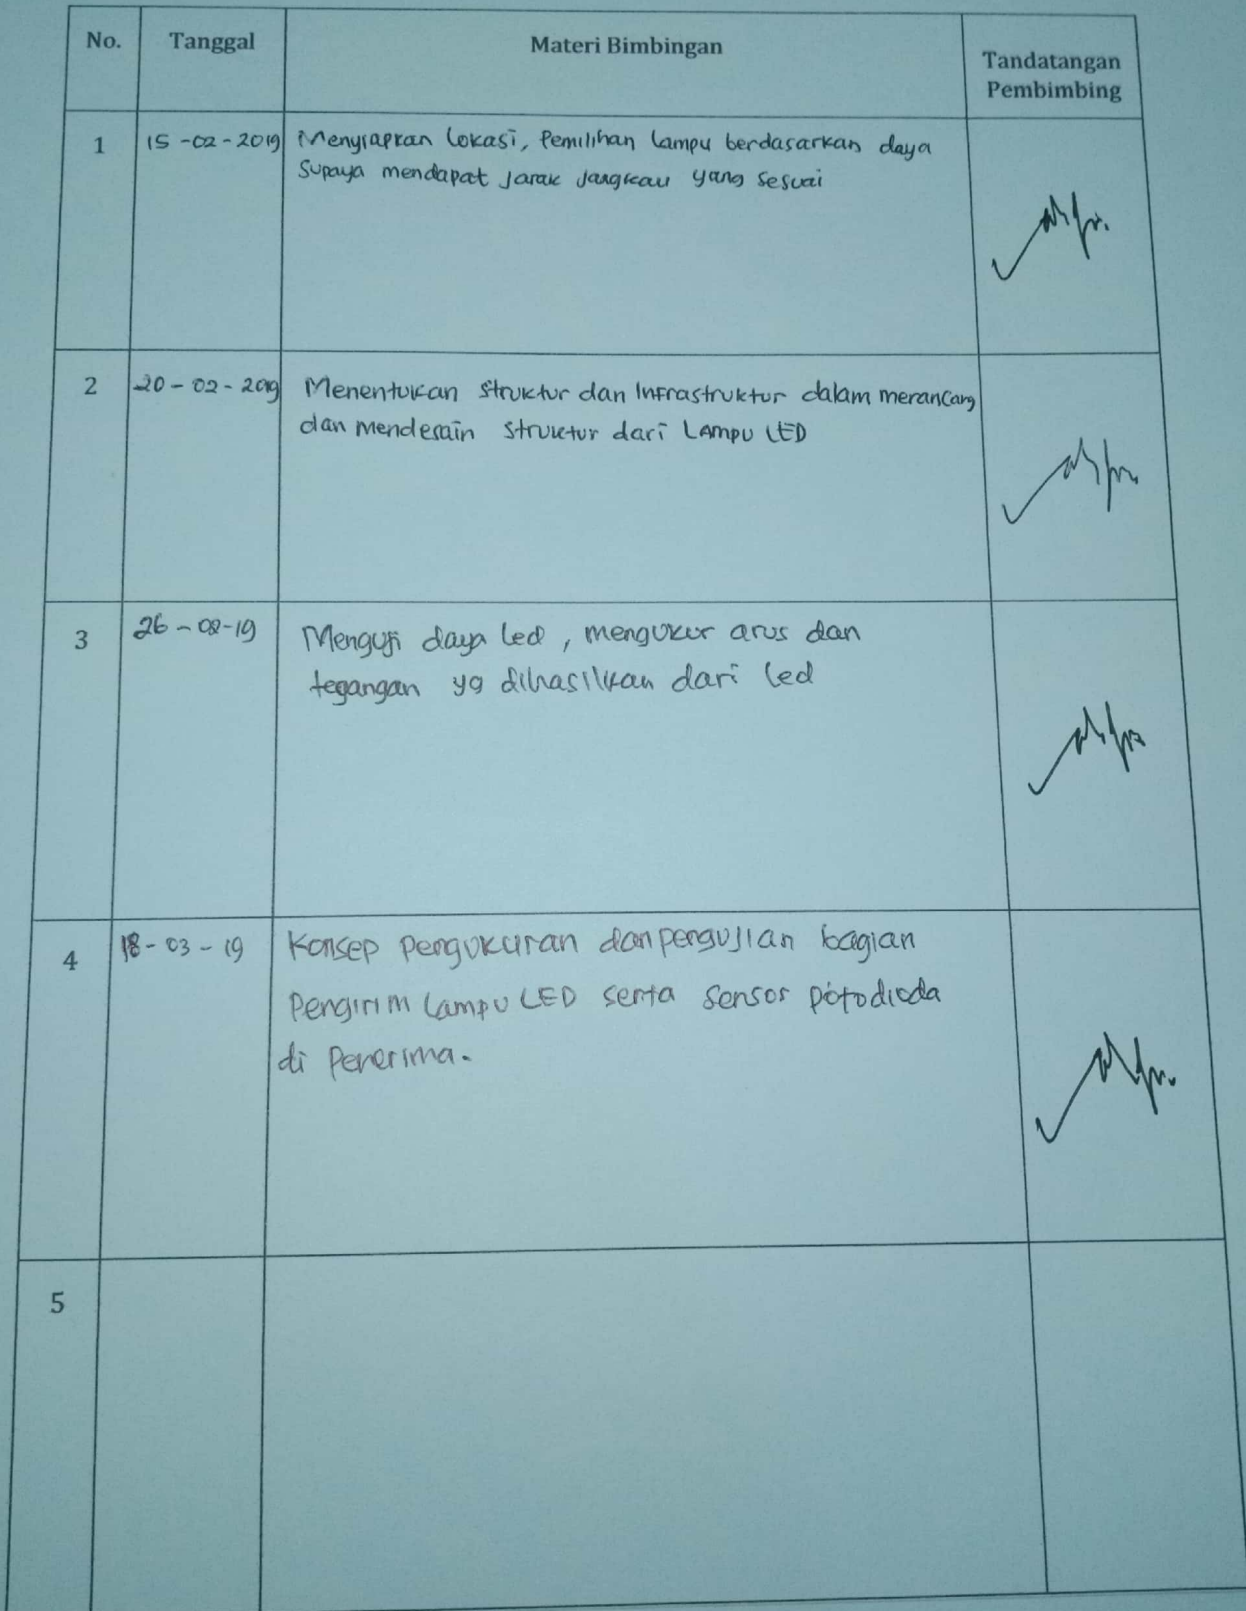 No. Tanggal Materi Bimbingan Tandatangan
Pembimbing
1 15-02-2019 Menyiapkan lokasi, Pemilihan lampu berdasarkan daya
Supaya mendapat jarak jangkau yang sesuai
2 20-02-2019 Menentukan struktur dan Infrastruktur dalam merancang
dan mendesain struktur dari Lampu LED
3 26-02-19 Menguji daya led, mengukur arus dan
tegangan yg dihasilkan dari led
4 18-03-19 Konsep pengukuran dan pengujian bagian
Pengirim Lampu LED serta sensor potodioda
di Penerima.
5